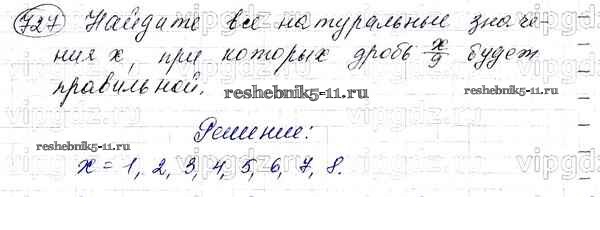 727 Найдите все натуральные значе-
ния x, при которых дробь x/9 будет
правильной.
reshebnik5-11.ru reshebnik5-11.ru
Решение:
reshebnik5-11.ru
x = 1, 2, 3, 4, 5, 6, 7, 8.